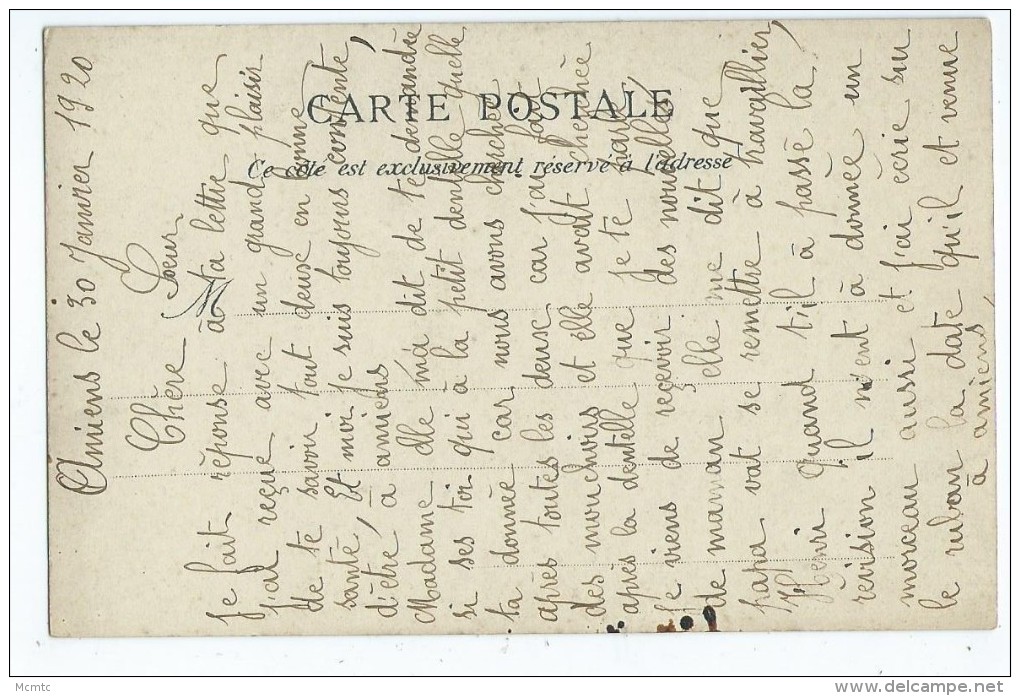 CARTE POSTALE
Ce côté est exclusivement réservé à l'adresse
M
Amiens le 30 Janvier 1920
Chère Soeur
Je fait réponse à Ta lettre que
j'ai reçue avec un grand plaisir
de te savoir tout deux en bonne
santé, Et moi je suis toujours contente,
d'être, à amiens
Madame elle m'a dit de te demandée
si ses toi qui à la petit dentelle quelle
ta donnée car nous avons cherchée
après toutes les deux car j'ai fait
des mouchoirs et elle avait cherchée
après la dentelle que je te parle
Je viens de reçevoir des nouvelles
de maman elle me dit que
papa vat se remettre à travaillier,
Henri quand til à passé la
révision il nsent à donnée un
morceau aussi et j'ai écrie sur
le ruban la date qu'il et venue
à amiens,
Mcmtc
delcampe.net